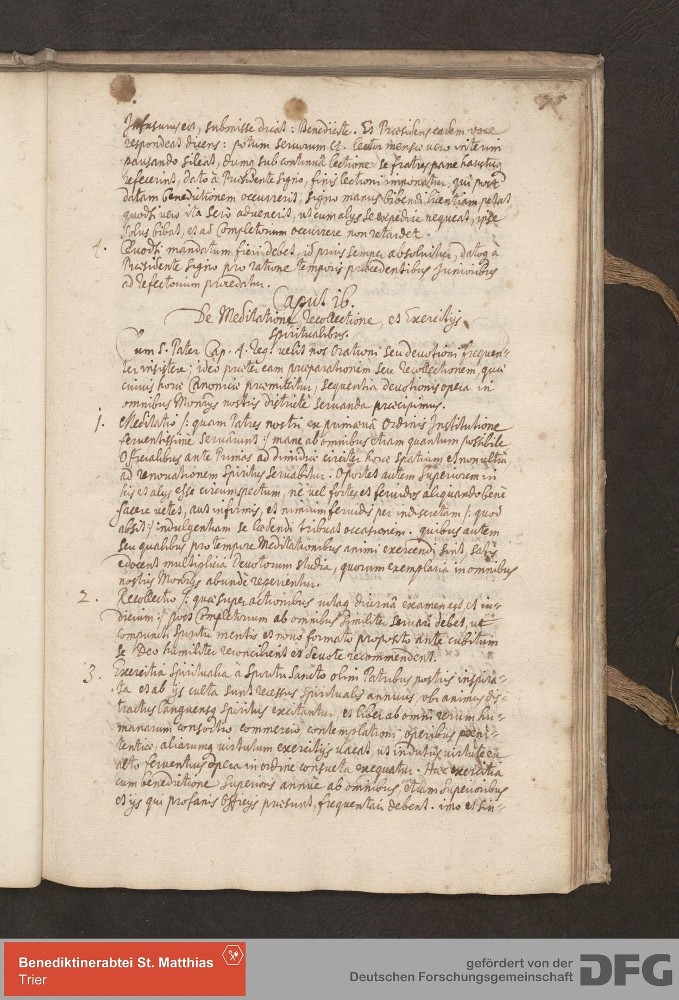 submisse dicat: Benedicite. Et Præsidens eadem voce
respondeat dicens: potum servorum &. lector mensæ vero interim
pausando sileat, dumq sub continuâ lectione se fratres pane haustuq
refecerint, dato à Præsidente signo, finis lectioni imponatur. qui post
datam benedictionem occurrerit, signo manus bibendi licentiam petat
quodsi vero ita serò advenerit, ut cum alys se expedire nequeat, ipse
solus bibat, et ad Completorium occurrere non retardet.
4. Quodsi mandatum fieri debet, id prius semper absolvitur, datoq a
Præsidente signo pro ratione temporis præcedentibus Junioribus
ad refectorium procedatur.
Caput 16.
De Meditatione, Recollectione, et Exercitijs
Spiritualibus.
Cum S. Pater Cap. 4. Reg. velit nos Orationi seu devotioni frequen=
ter insistere; ideo præter eam præparationem seu recollectionem, quæ
cuivis horæ Canonicæ præmittitur, sequentia devotionis opera in
omnibus Monrys nostris districtè servanda præcipimus.
1. Meditatio /: quam Patres nostri ex primævâ Ordinis Institutione
ferventissimè servârunt :/ mane ab omnibus etiam quantum possibile
Officialibus ante Primas ad dimidiæ circiter horæ spatium et non ultra
ad renovationem Spiritus servabitur. Oportet autem Superiorem in
his et alys esse circumspectum, nè vel fortes et fervidos aliquando benè
facere vetet, aut infirmis, et nimium fervidis per indiscretam /: quod
absit :/ indulgentiam se lædendi tribuat occasionem. quibus autem
seu qualibus pro tempore Meditationibus animi exercendi sint, satis
edocent multiplicia Devotorum studia, quorum exemplaria in omnibus
nostris Monrys abundè reperientur.
2. Recollectio /: quæ super actionibus vitaq diurnâ examen est, et iu=
dicium :/ post Completorium ab omnibus similiter servari debet, ut
compuncti Spiritu mentis et novo formato proposito ante cubitum
se Deo humiliter reconcilient et devotè recommendent.
3. Exercitia Spiritualia à Spiritu Sancto olim Patribus nostris inspira=
ta et ab ijs culta sunt recessus Spiritualis annuus, ubi animus dis=
tractus languensq Spiritus excitantur, et liber ab omni rerum hu=
manarum consortio, commercio, contemplationi, operibus pœni=
tentiæ, aliarumq virtutum exercitijs vacat, ut indutus virtute ex
alto ferventius opera in ordine consueta exequatur. Hæc exercitia
cum benedictione Superioris annuè ab omnibus, etiam Superioribus
et ijs qui profanis Officijs præsunt, frequentari debent. imò et sin=
Benediktinerabtei St. Matthias
Trier
gefördert von der
Deutschen Forschungsgemeinschaft
DFG